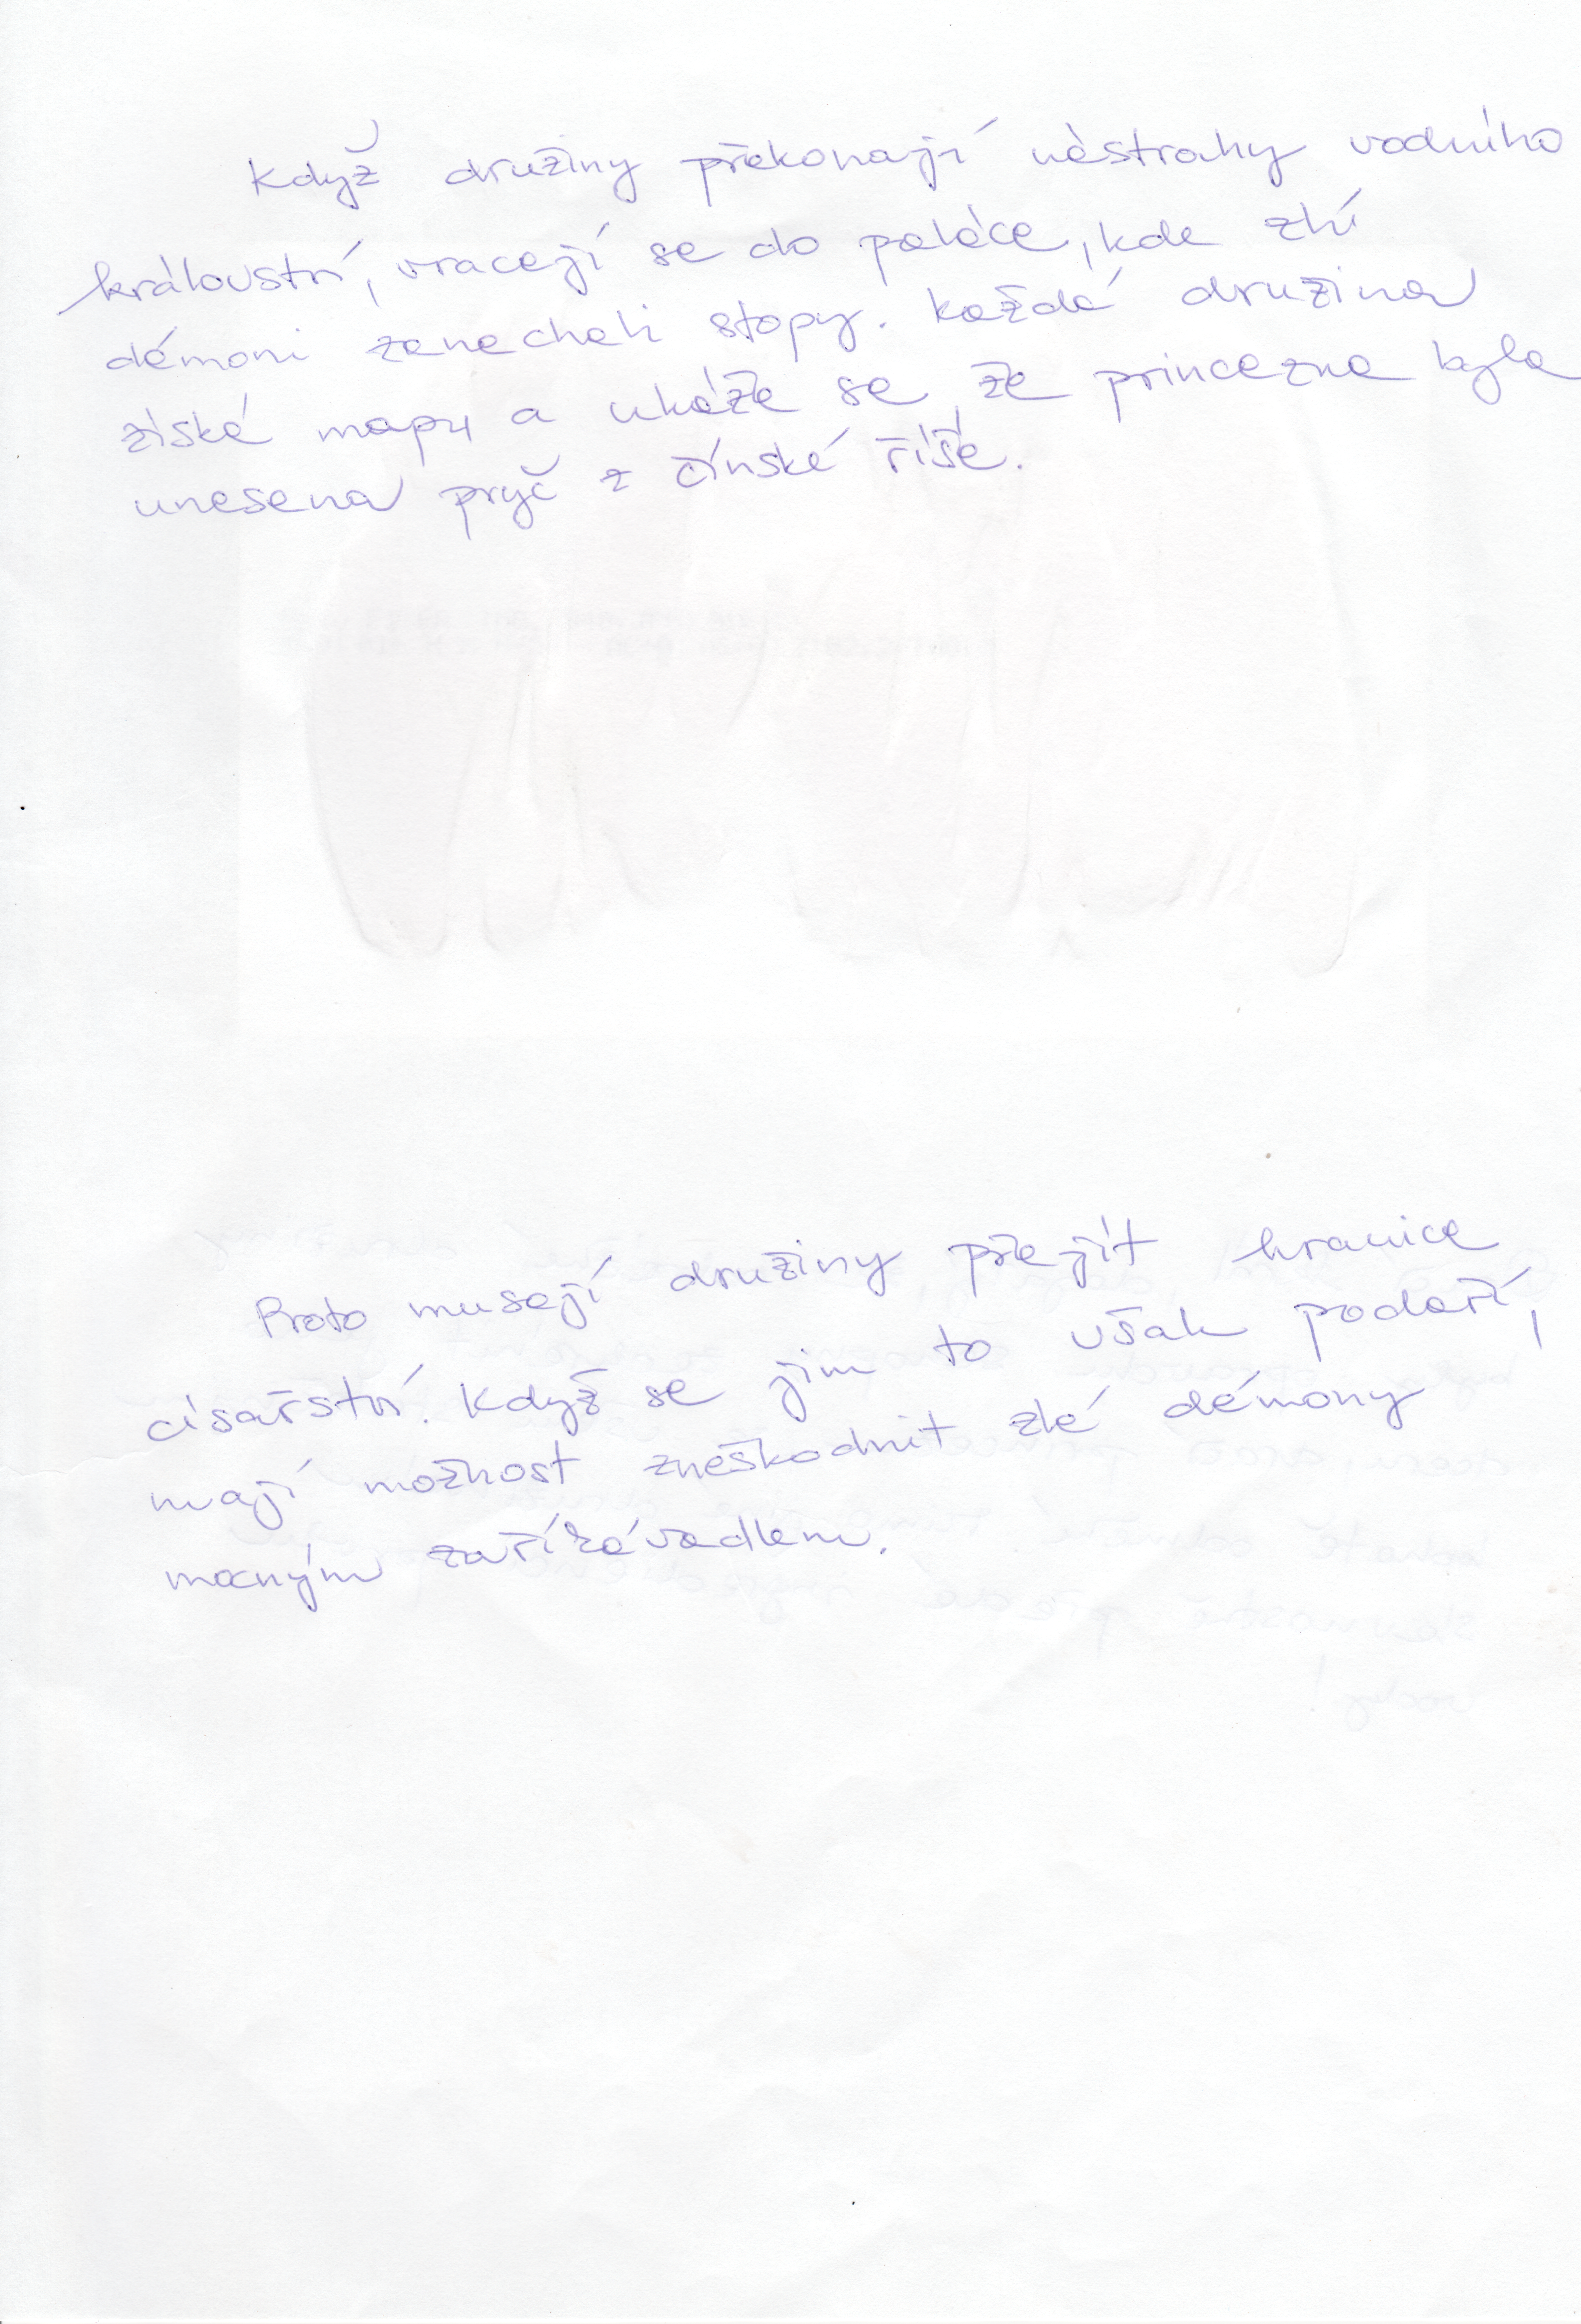 Když družiny překonají nástrahy vodního
království, vracejí se do paláce, kde zlí
démoni zanechali stopy. Každá družina
získá mapu a ukáže se, že princezna byla
unesena pryč z čínské říše.
Proto musejí družiny přejít hranice
císařství. Když se jim to však podaří,
mají možnost zneškodnit zlé démony
mocným zaříkávadlem.